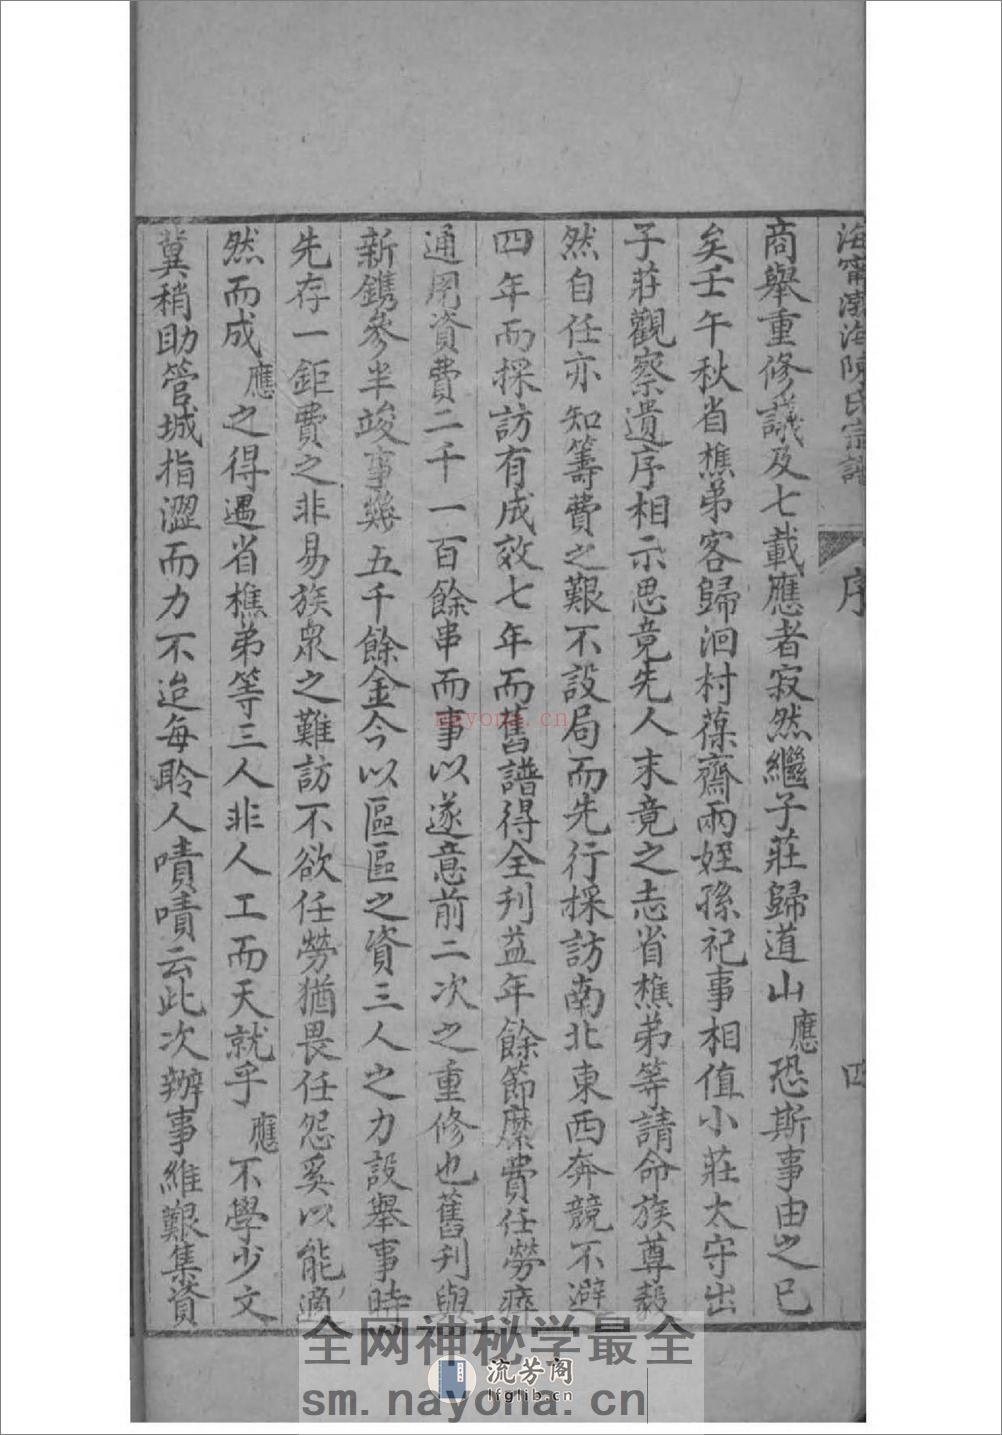 海寧渤海陳氏宗譜 序 四
商舉重修議及七載應者寂然繼子莊歸道山應恐斯事由之已
矣壬午秋省樵弟客歸洄村葆齋兩姪孫祀事相值小莊太守出
子莊觀察遺序相示思竟先人未竟之志省樵弟等請命族尊毅
然自任亦知籌費之艱不設局而先行採訪南北東西奔競不避
四年而採訪有成效七年而舊譜得全刊益年餘節縻費任勞瘁
通用資費二千一百餘串而事以遂意前二次之重修也舊刊與
新鐫參半竣事幾五千餘金今以區區之資三人之力設舉事時
先存一鉅費之非易族衆之難訪不欲任勞猶畏任怨奚以能適
然而成應之得遇省樵弟等三人非人工而天就乎應不學少文
冀稍助管城指澀而力不迨每聆人嘖嘖云此次辦事維艱集資
nayona.cn
全网神秘学最全
流芳阁
lfglib.cn
sm.nayona.cn